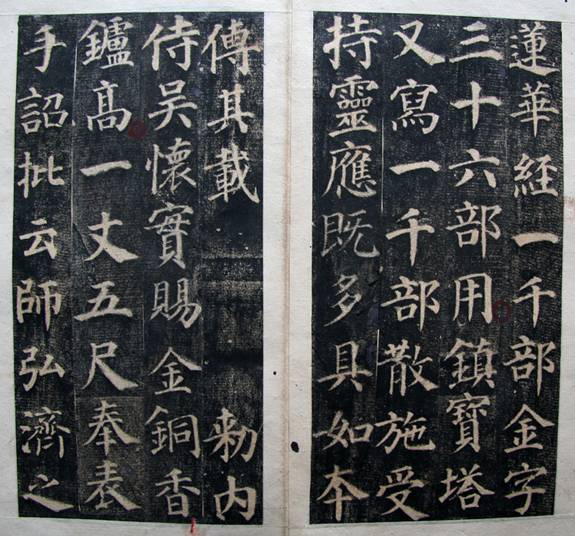 蓮華経一千部金字
三十六部用鎮寶塔
又寫一千部散施受
持靈應既多具如本
傳其載 勑内
侍吴懷實賜金銅香
鑪髙一丈五尺奉表
手詔批云師弘濟之